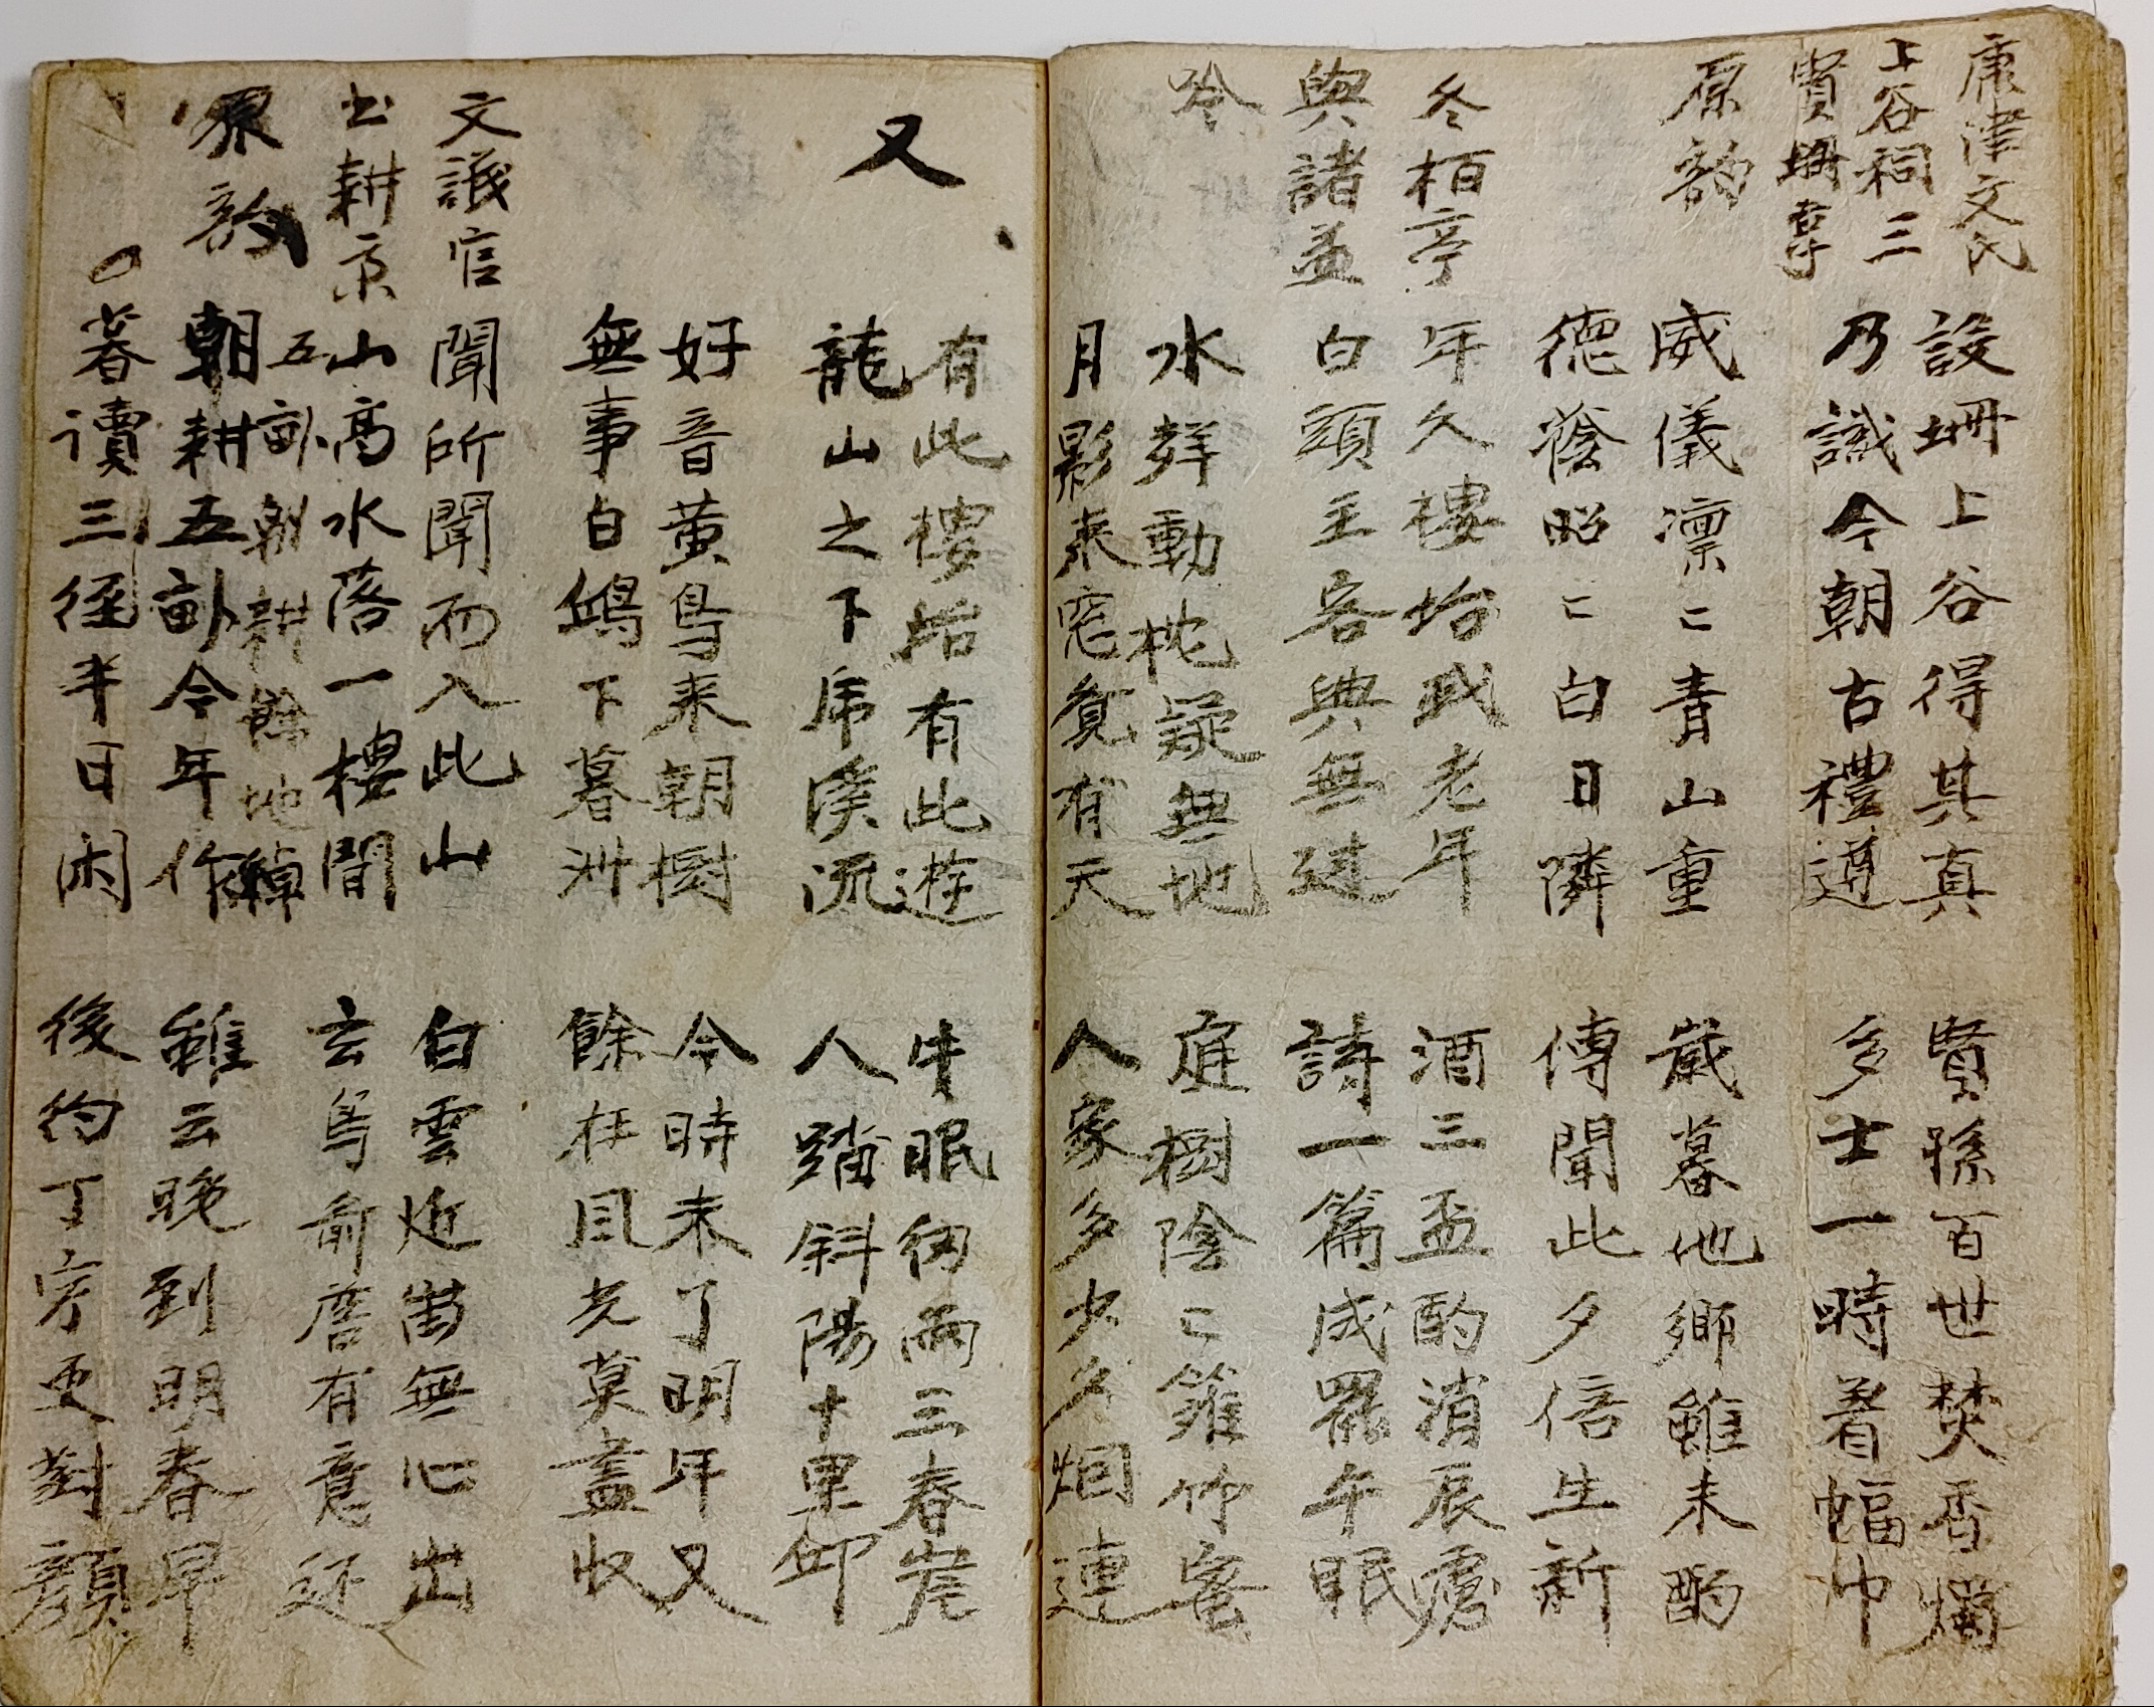 康津文氏
上谷祠三
賢壇享
原韵
設壇上谷得其真 賢孫百世焚香燭
乃識今朝古禮遵 多士一時着幅巾
威儀凛〻青山重 歲暮他鄉雖未酌
德蔭昭〻白日隣 傳聞此夕倍生新
冬栢亭
與諸益
吟
年久樓坮我老年 酒三盃酌消辰處
白頭主客興無邊 詩一篇成罷午眠
水辞動枕疑無地 庭樹陰〻籬竹密
月影来窓覓有天 人家多少夕烟連
又
有此樓坮有此遊 牛眠細雨三春岸
龍山之下乕溪流 人踏斜陽十里邱
好音黄鳥来朝樹 今時未了明年又
無事白鴎下暮洲 餘在風光莫盡收
文議官
士耕京
原韵
聞所聞而入此山 白雲近岫無心出
山高水落一樓間 玄鳥前詹有意还
五畝朝耕餘地綽
朝耕五畝今年作 雖云晚到明春早
暮讀三徑半日闲 後約丁寧更對顔